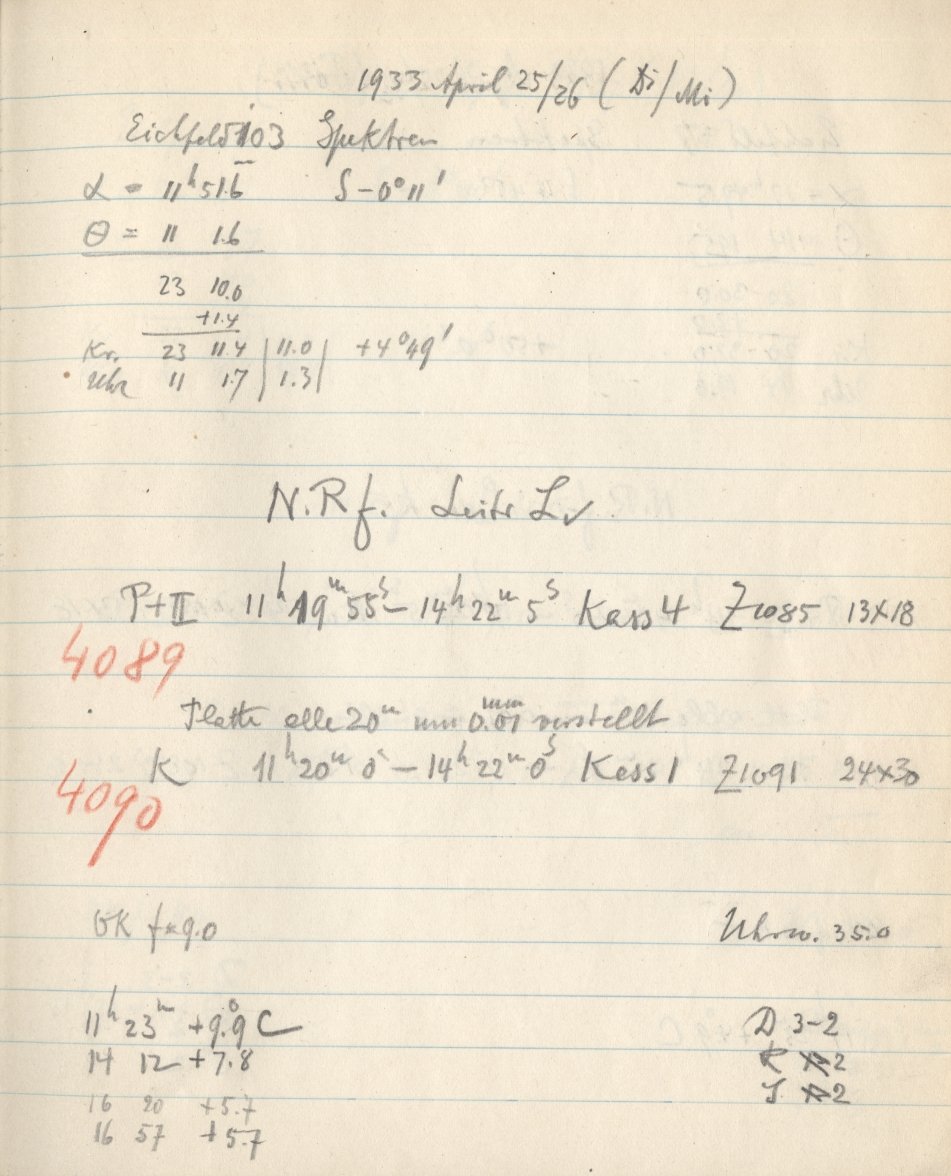 1933 April 25/26 (Di/Mi)
Eichfeld 103 Spektren
α = 11ʰ 51.6 δ -0° 11'
Θ = 11 1.6
23 10.0
+1.4
Kr. 23 11.4 | 11.0 | +4° 49'
Uhr 11 1.7 | 1.3 |
N.R f. Leitr
P+II 11ʰ 19ᵐ 55ˢ - 14ʰ 22ᵐ 5ˢ Kass 4 Z1085 13×18
4089
Platte alle 20ᵐ um 0.01 mm verstellt
K 11ʰ 20ᵐ 0ˢ - 14ʰ 22ᵐ 0ˢ Kass 1 Z1091 24×30
4090
GK f=9.0 Uhrw. 35.0
11ʰ 23ᵐ +9.°9 C D 3-2
14 12 +7.8 R 2
16 20 +5.7 2
16 57 +5.7